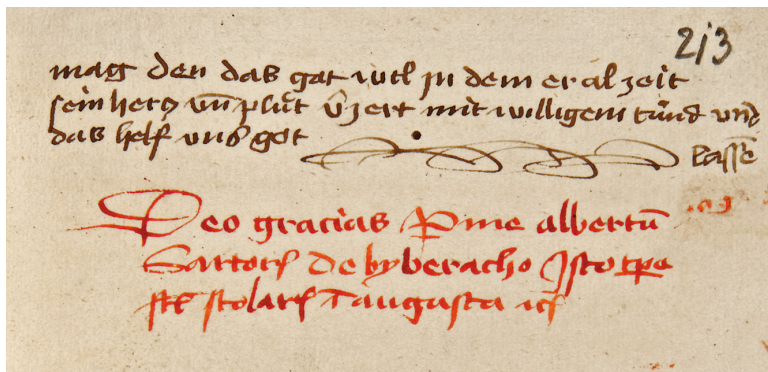 213
mag den das gat wil jn dem er al zeit
sein hertz vñ plůt v̄zert mit willigem vnd
das helf vns got lassē
Deo gracias P me albertū
Sartor de byberacho Isto tpe
scolar ī augusta